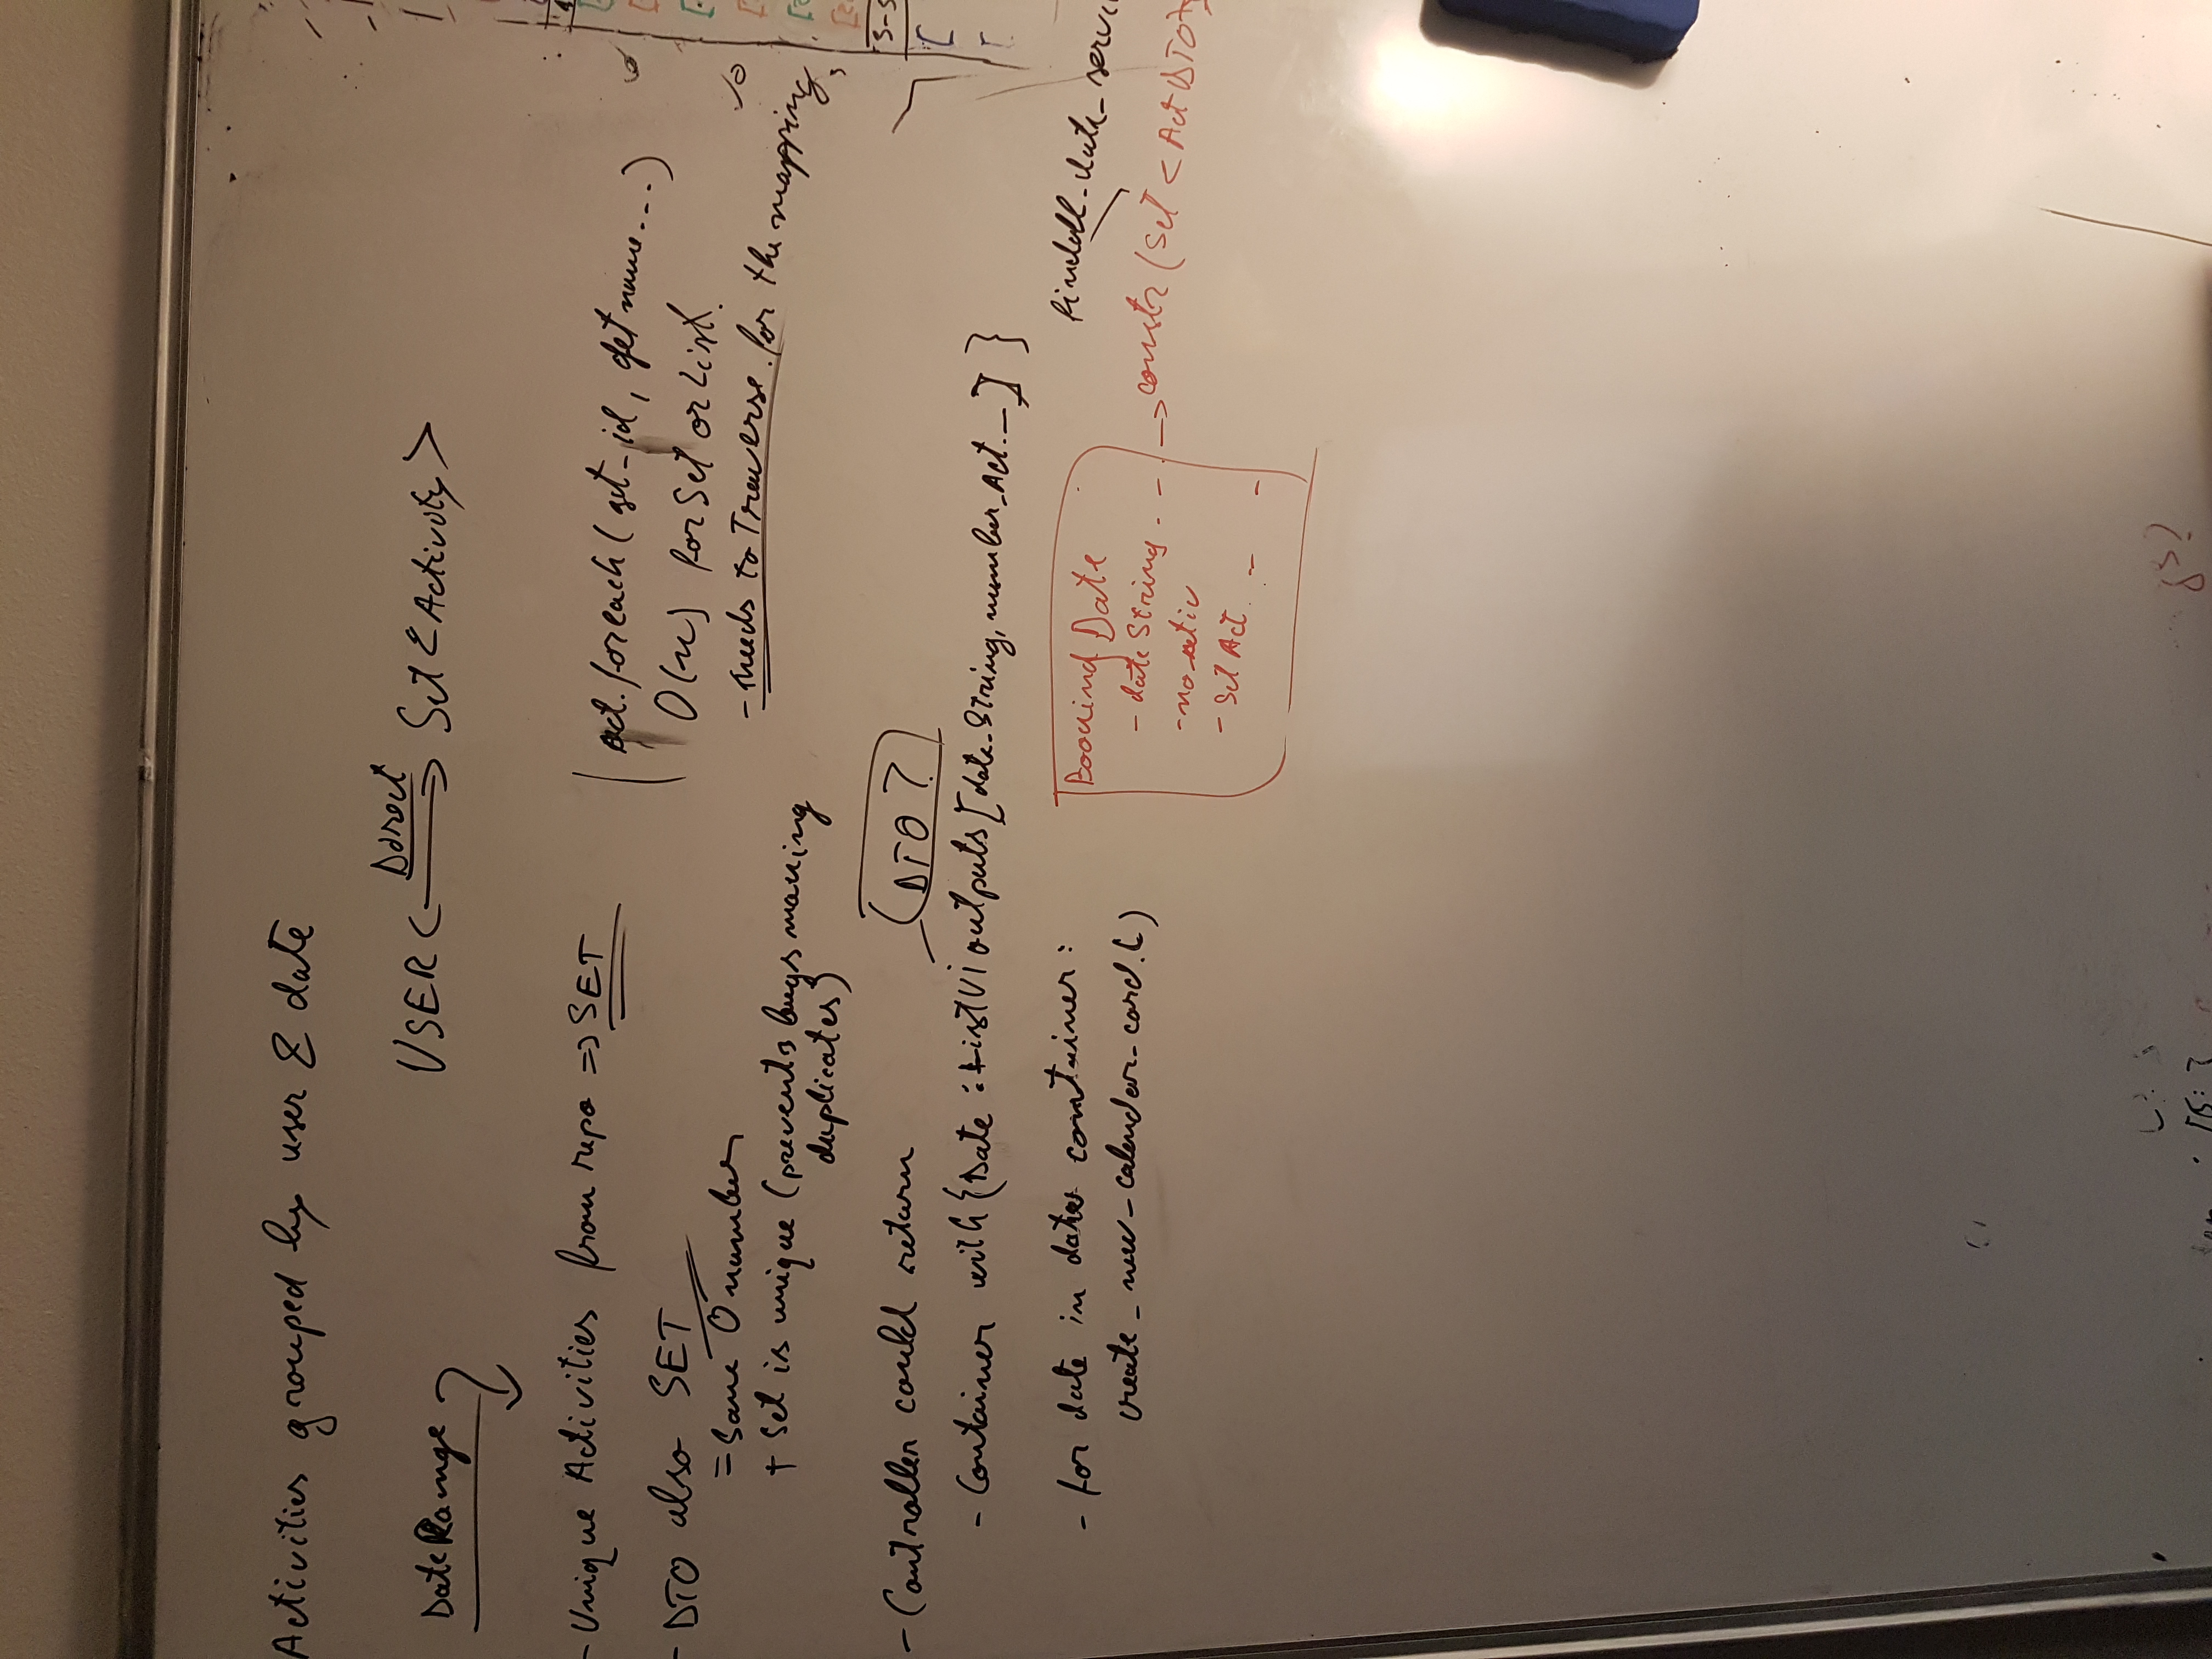 Activities grouped by user & date
USER <=> Set <Activity>
Direct
DateRange
- Unique Activities from repo => SET
- DTO also SET
= same O number
+ Set is unique (prevents bugs making
duplicates)
act.foreach ( get_id, get name... )
O(n) for Set or List.
- needs to Traverse for the mapping
- Controller could return
DTO?
- Container with {Date : outputs [date_String, number_Act. _ ] }
- for date in dates container:
create_new_calendar_card.()
Booking Date
- date String
- no_activ
- Set Act.
-> constr (Set < Act DTO >
findall_data_servi
10
5-5
gs?